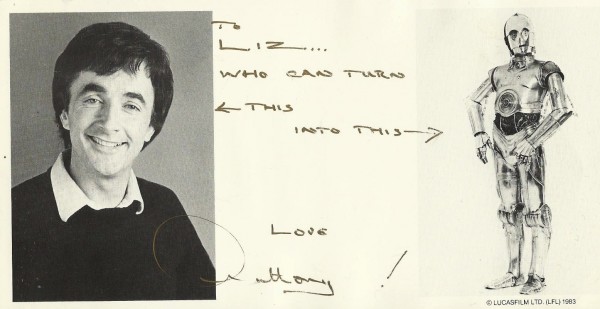 TO
LIZ...
WHO CAN TURN
← THIS
INTO THIS →
LOVE
Anthony!
© LUCASFILM LTD. (LFL) 1983